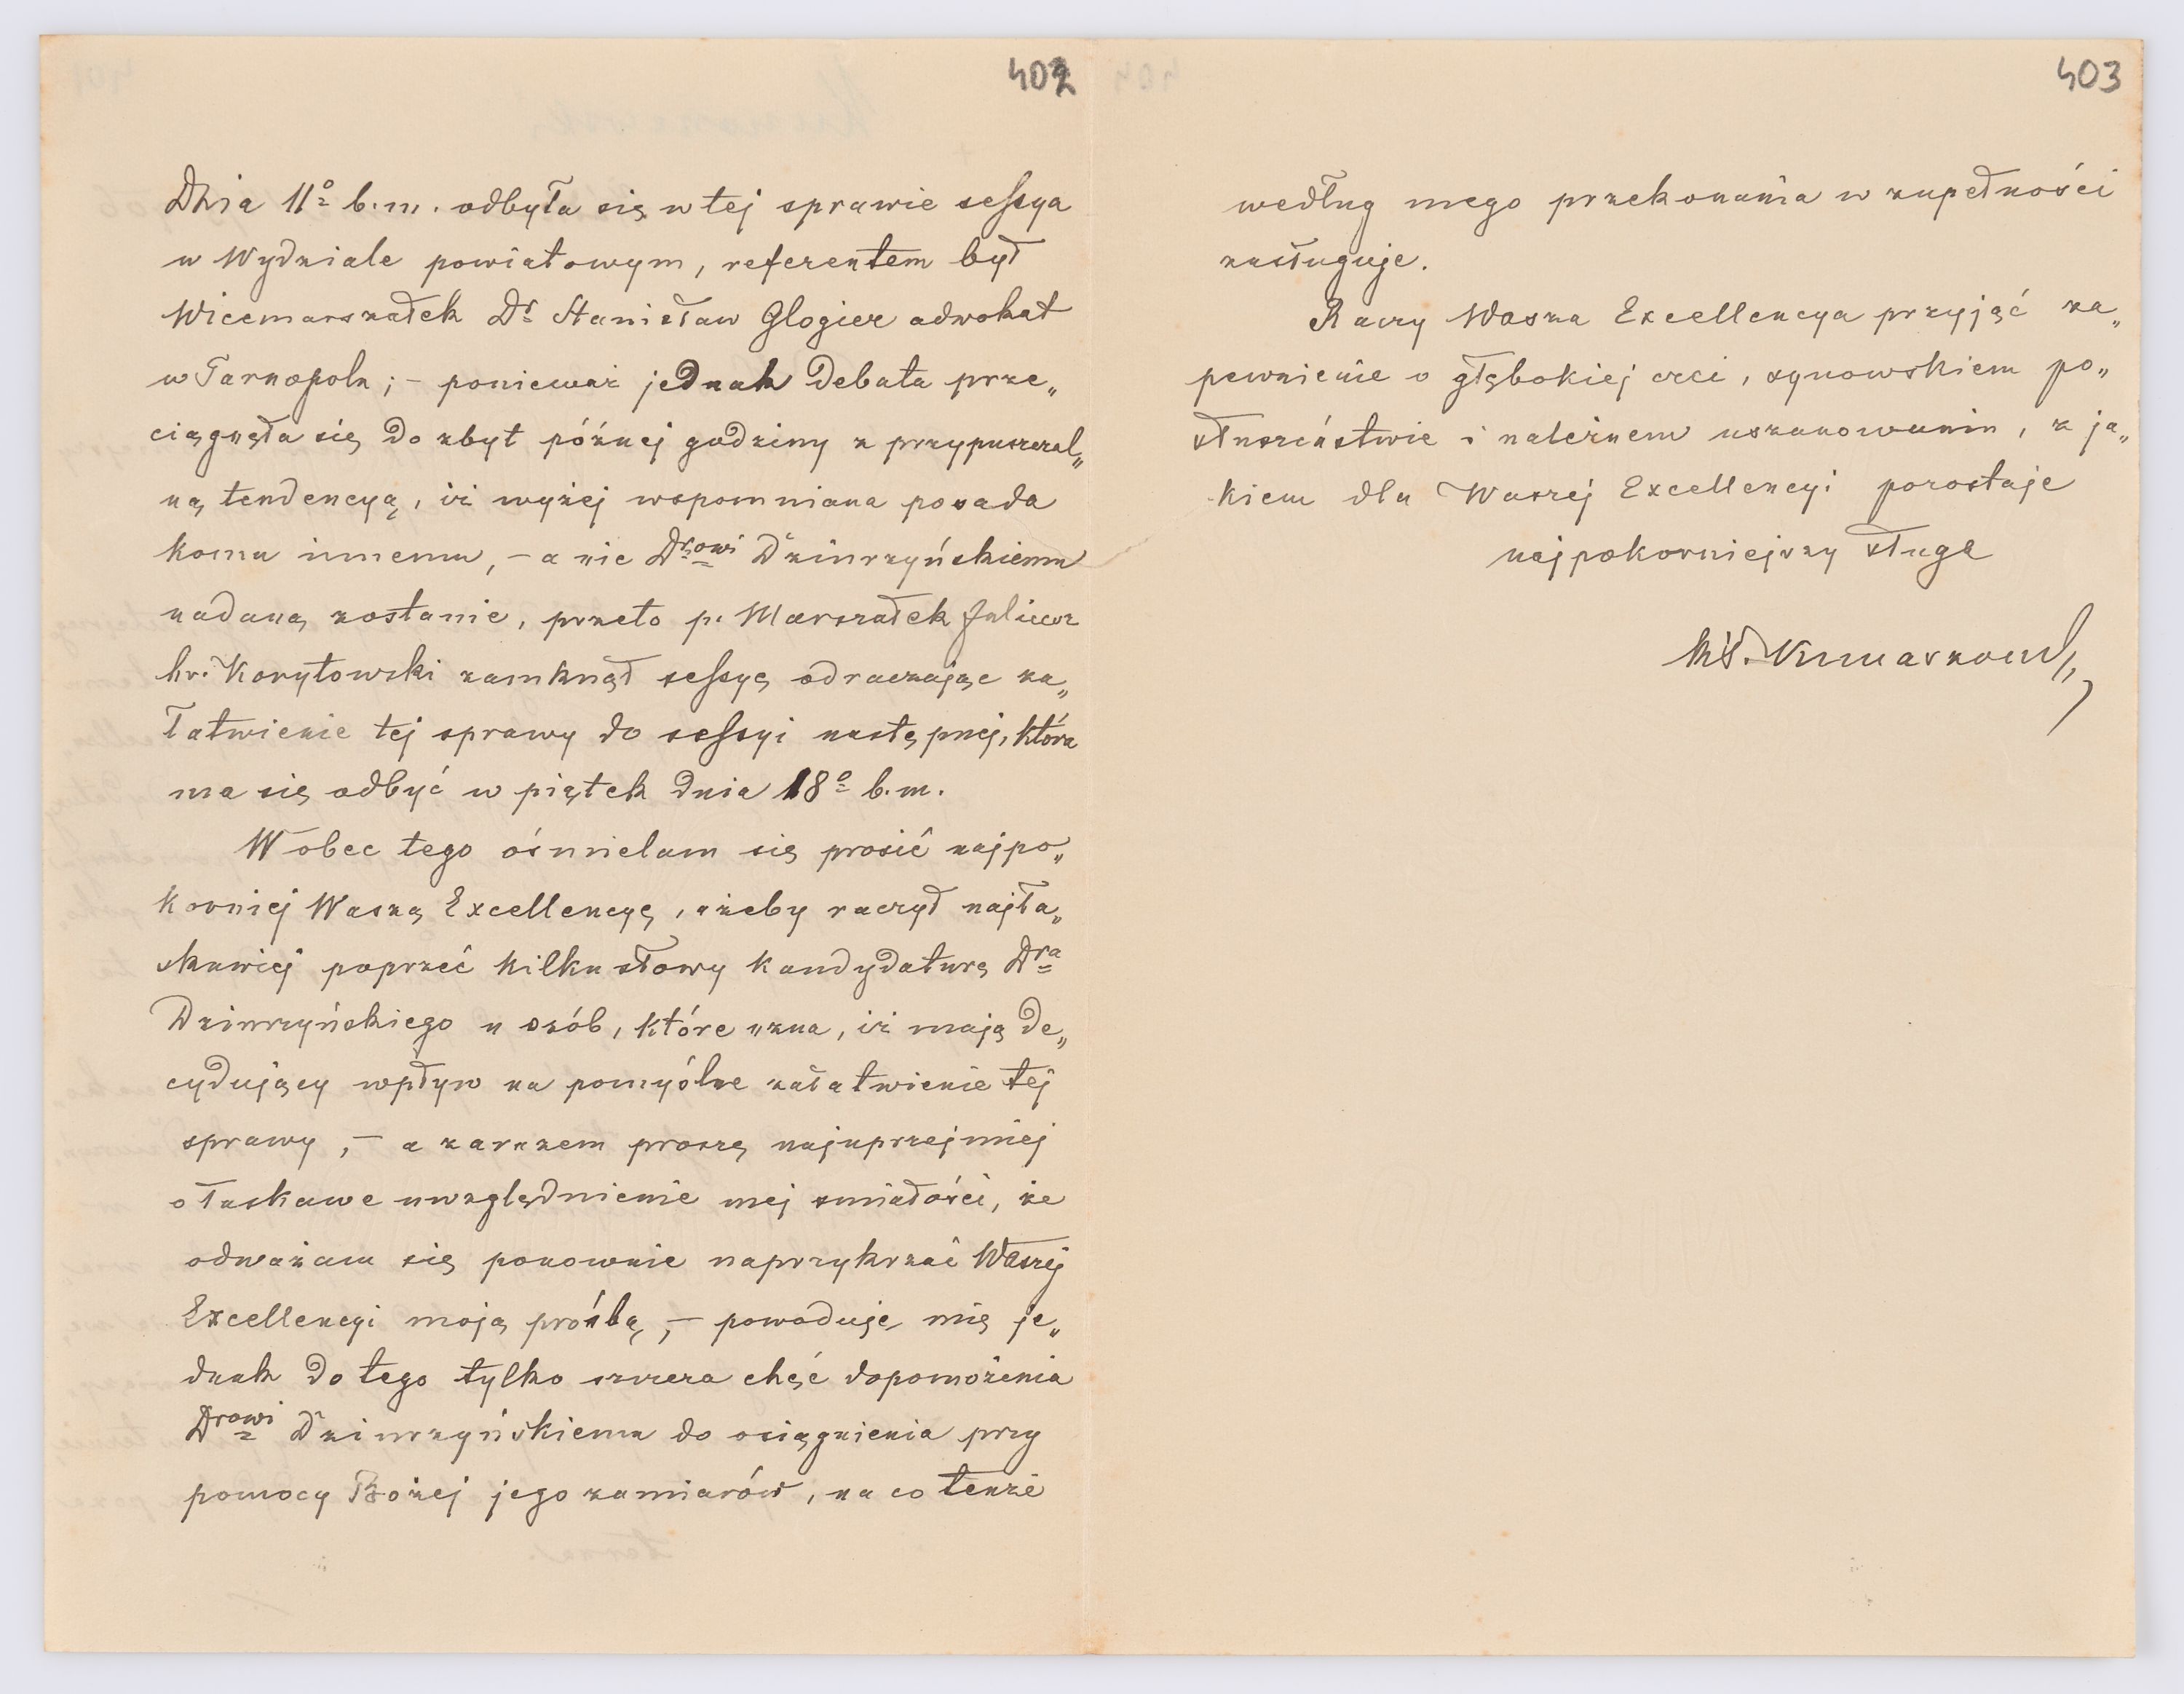 402
Dnia 11º b.m. odbyła się w tej sprawie sessya
w Wydziale powiatowym, referentem był
Wicemarszałek Dr Stanisław Glogier adwokat
w Tarnopolu; – ponieważ jednak debata prze„
ciągnęła się do zbyt późnej godziny z przypuszczal„
ną tendencyą, iż wyżej wspomniana posada
komu innemu, – a nie Drowi Dziurzyńskiemu
nadaną zostanie, przeto p. Marszałek Juliusz
hr. Korytowski zamknął sessyę odraczając za„
łatwienie tej sprawy do sessyi następnej, która
ma się odbyć w piątek dnia 18º b.m.
Wobec tego ośmielam się prosić najpo„
korniej Waszą Excellencyę, ażeby raczył najła„
skawiej poprzeć kilku słowy kandydaturę Dra
Dziurzyńskiego u osób, które uzna, iż mają de„
cydujący wpływ na pomyślne załatwienie tej
sprawy, – a zarazem proszę najuprzejmiej
o łaskawe uwzględnienie mej smiałości, że
odważam się ponownie naprzykrzać Waszej
Excellencyi moją prośbą, – powoduje mię je„
dnak do tego tylko szczera chęć dopomożenia
Drowi Dziurzyńskiemu do osiągnienia przy
pomocy Bożej jego zamiarów, na co tenże
403
według mego przekonania w zupełności
zasługuje.
Raczy Wasza Excellencya przyjąć za„
pewnienie o głębokiej czci, synowskiem po„
słuszeństwie i należnem uszanowaniu, z ja„
kiem dla Waszej Excellencyi pozostaje
najpokorniejszy sługa